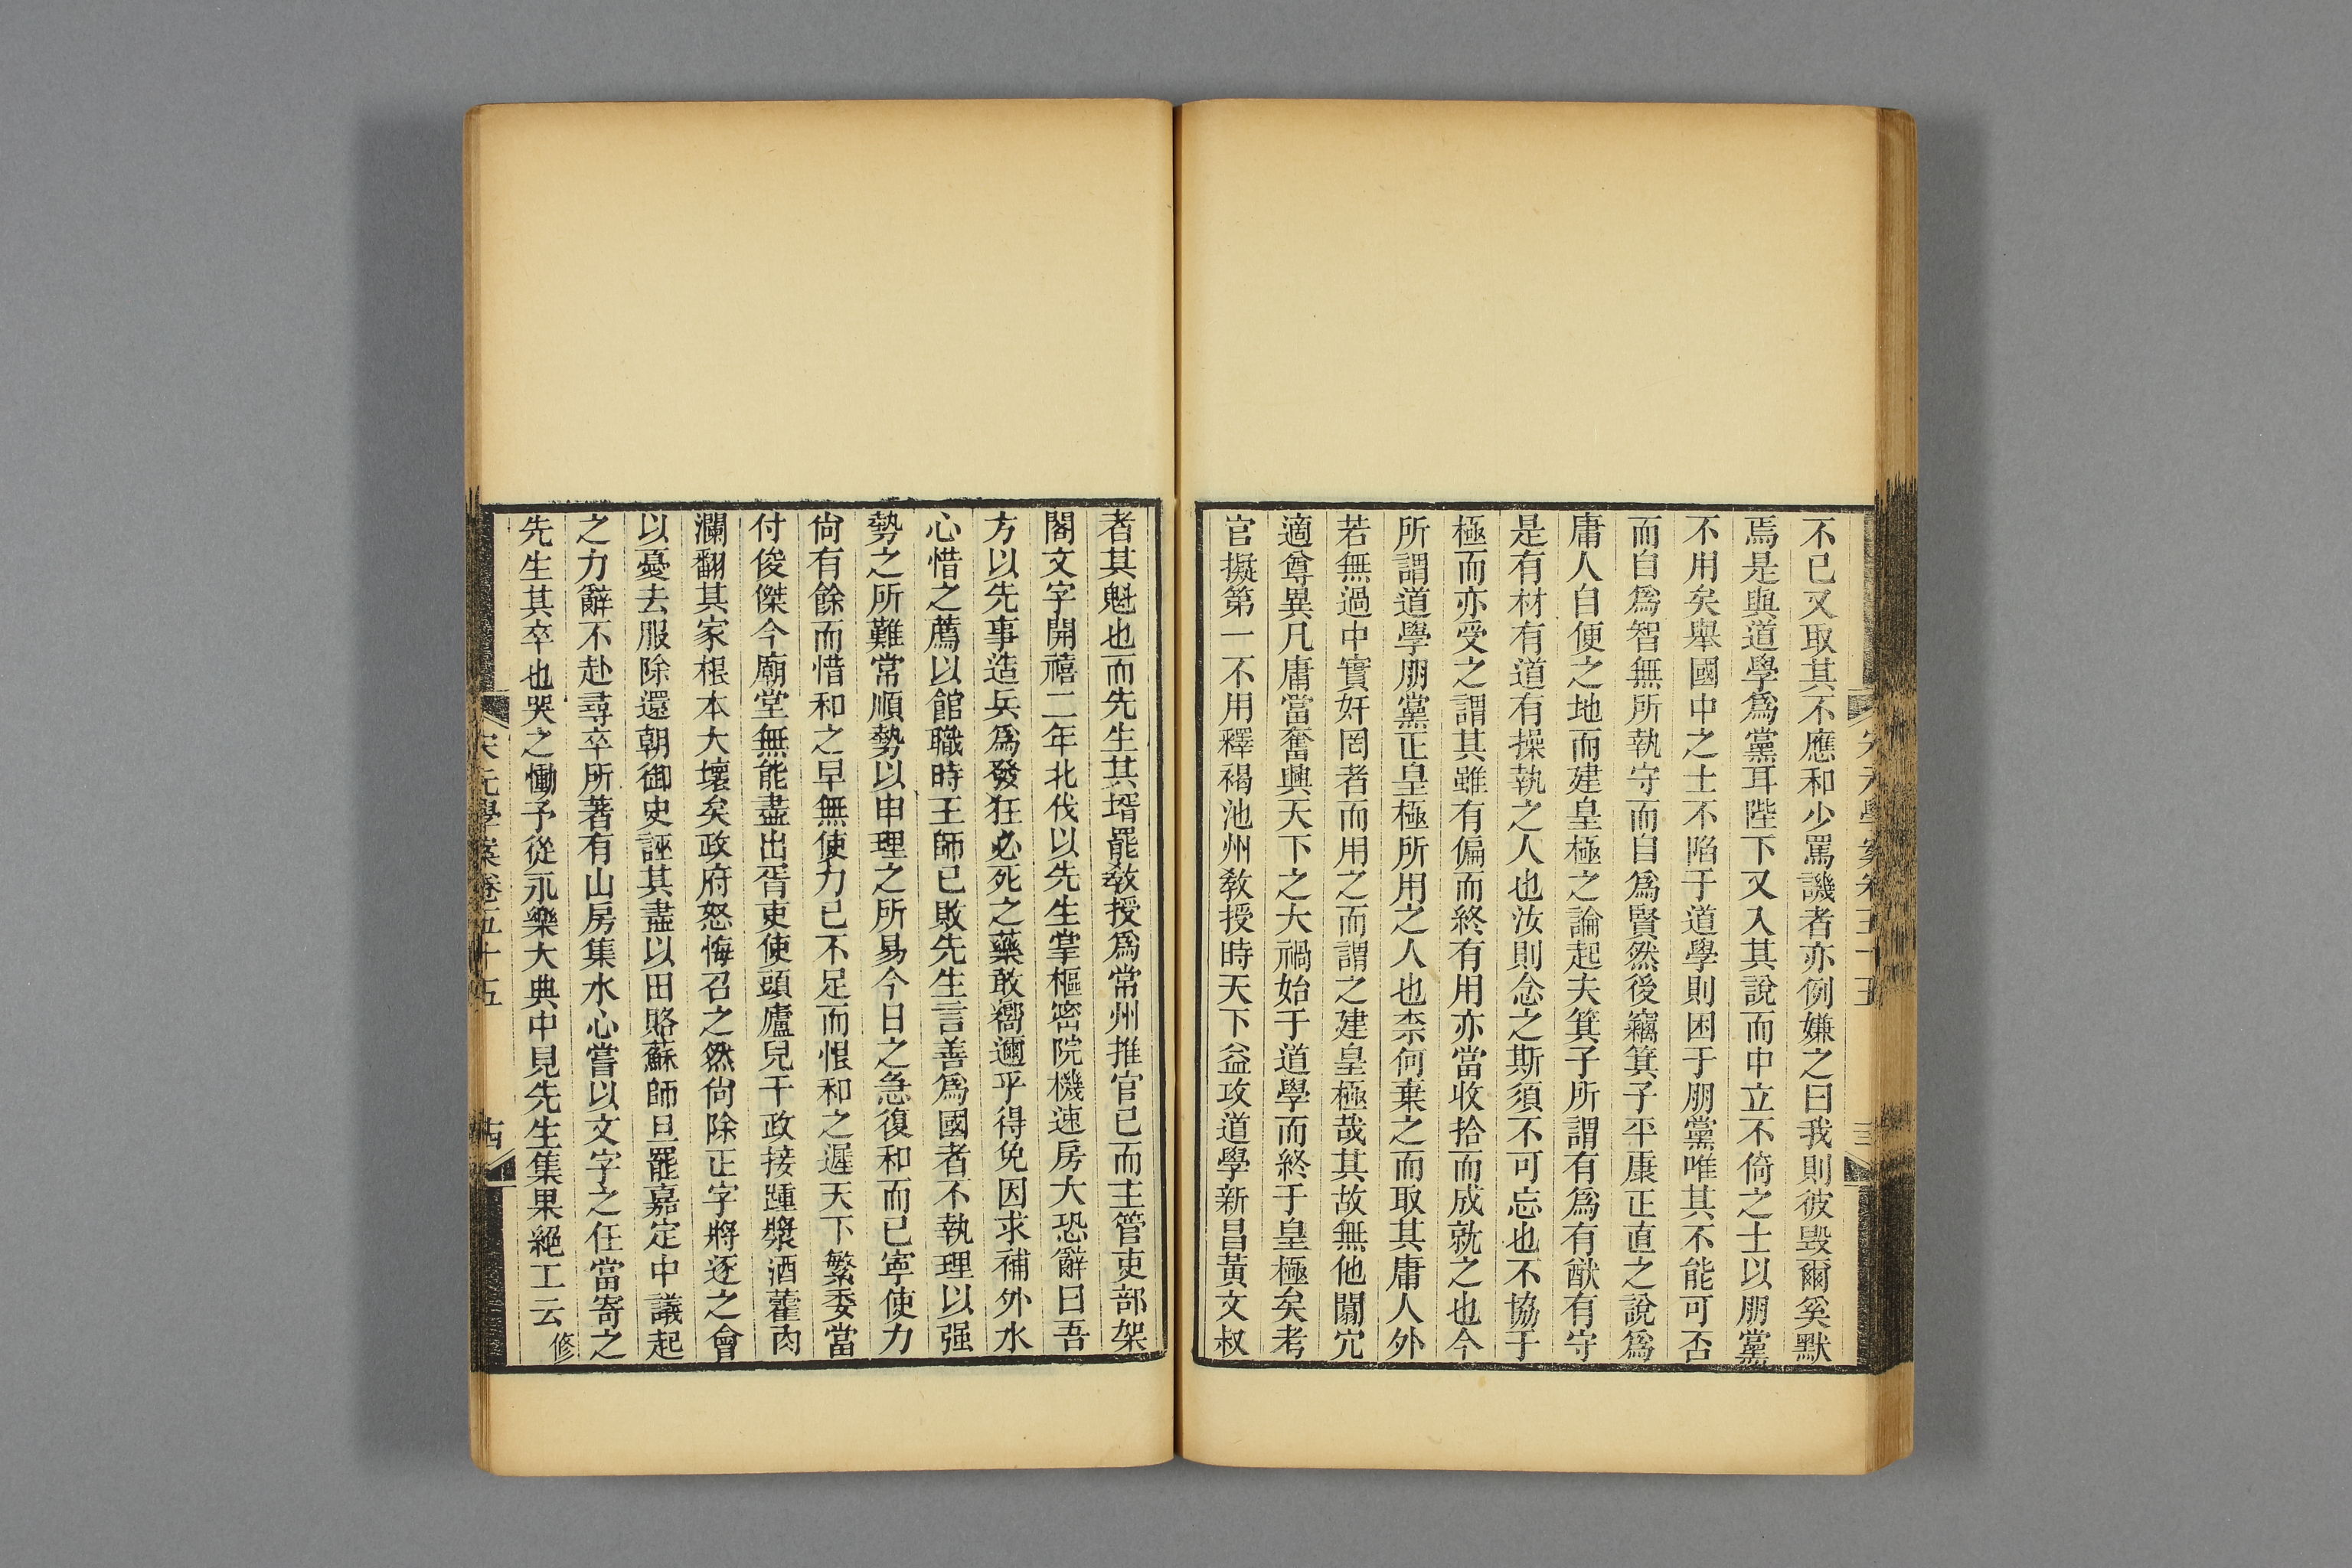 不已又取其不應和少罵譏者亦例嫌之曰我則彼毀爾奚默
焉是與道學爲黨耳陛下又入其說而中立不倚之士以朋黨
不用矣舉國中之士不陷于道學則困于朋黨唯其不能可否
而自爲智無所執守而自爲賢然後竊箕子平康正直之說爲
庸人自便之地而建皇極之論起夫箕子所謂有爲有猷有守
是有材有道有操執之人也汝則念之斯須不可忘也不協于
極而亦受之謂其雖有偏而終有用亦當收拾而成就之也今
所謂道學朋黨正皇極所用之人也柰何棄之而取其庸人外
若無過中實奸罔者而用之而謂之建皇極哉其故無他闒宂
適尊異凡庸當奮興天下之大禍始于道學而終于皇極矣考
官擬第一不用釋褐池州敎授時天下益攻道學新昌黃文叔
者其魁也而先生其壻罷敎授爲常州推官已而主管吏部架
閣文字開禧二年北伐以先生掌樞密院機速房大恐辭曰吾
方以先事造兵爲發狂必死之藥敢嚮邇乎得免因求補外水
心惜之薦以館職時王師已敗先生言善爲國者不執理以强
勢之所難常順勢以申理之所易今日之急復和而已寧使力
尙有餘而惜和之早無使力已不足而恨和之遲天下繁委當
付俊傑今廟堂無能盡出胥吏使頭廬兒干政接踵漿酒藿肉
瀾翻其家根本大壞矣政府怒悔召之然尙除正字將逐之會
以憂去服除還朝御史誣其盡以田賂蘇師旦罷嘉定中議起
之力辭不赴尋卒所著有山房集水心嘗以文字之任當寄之
先生其卒也哭之慟予從永樂大典中見先生集果絕工云 修
宋元學案卷五十五